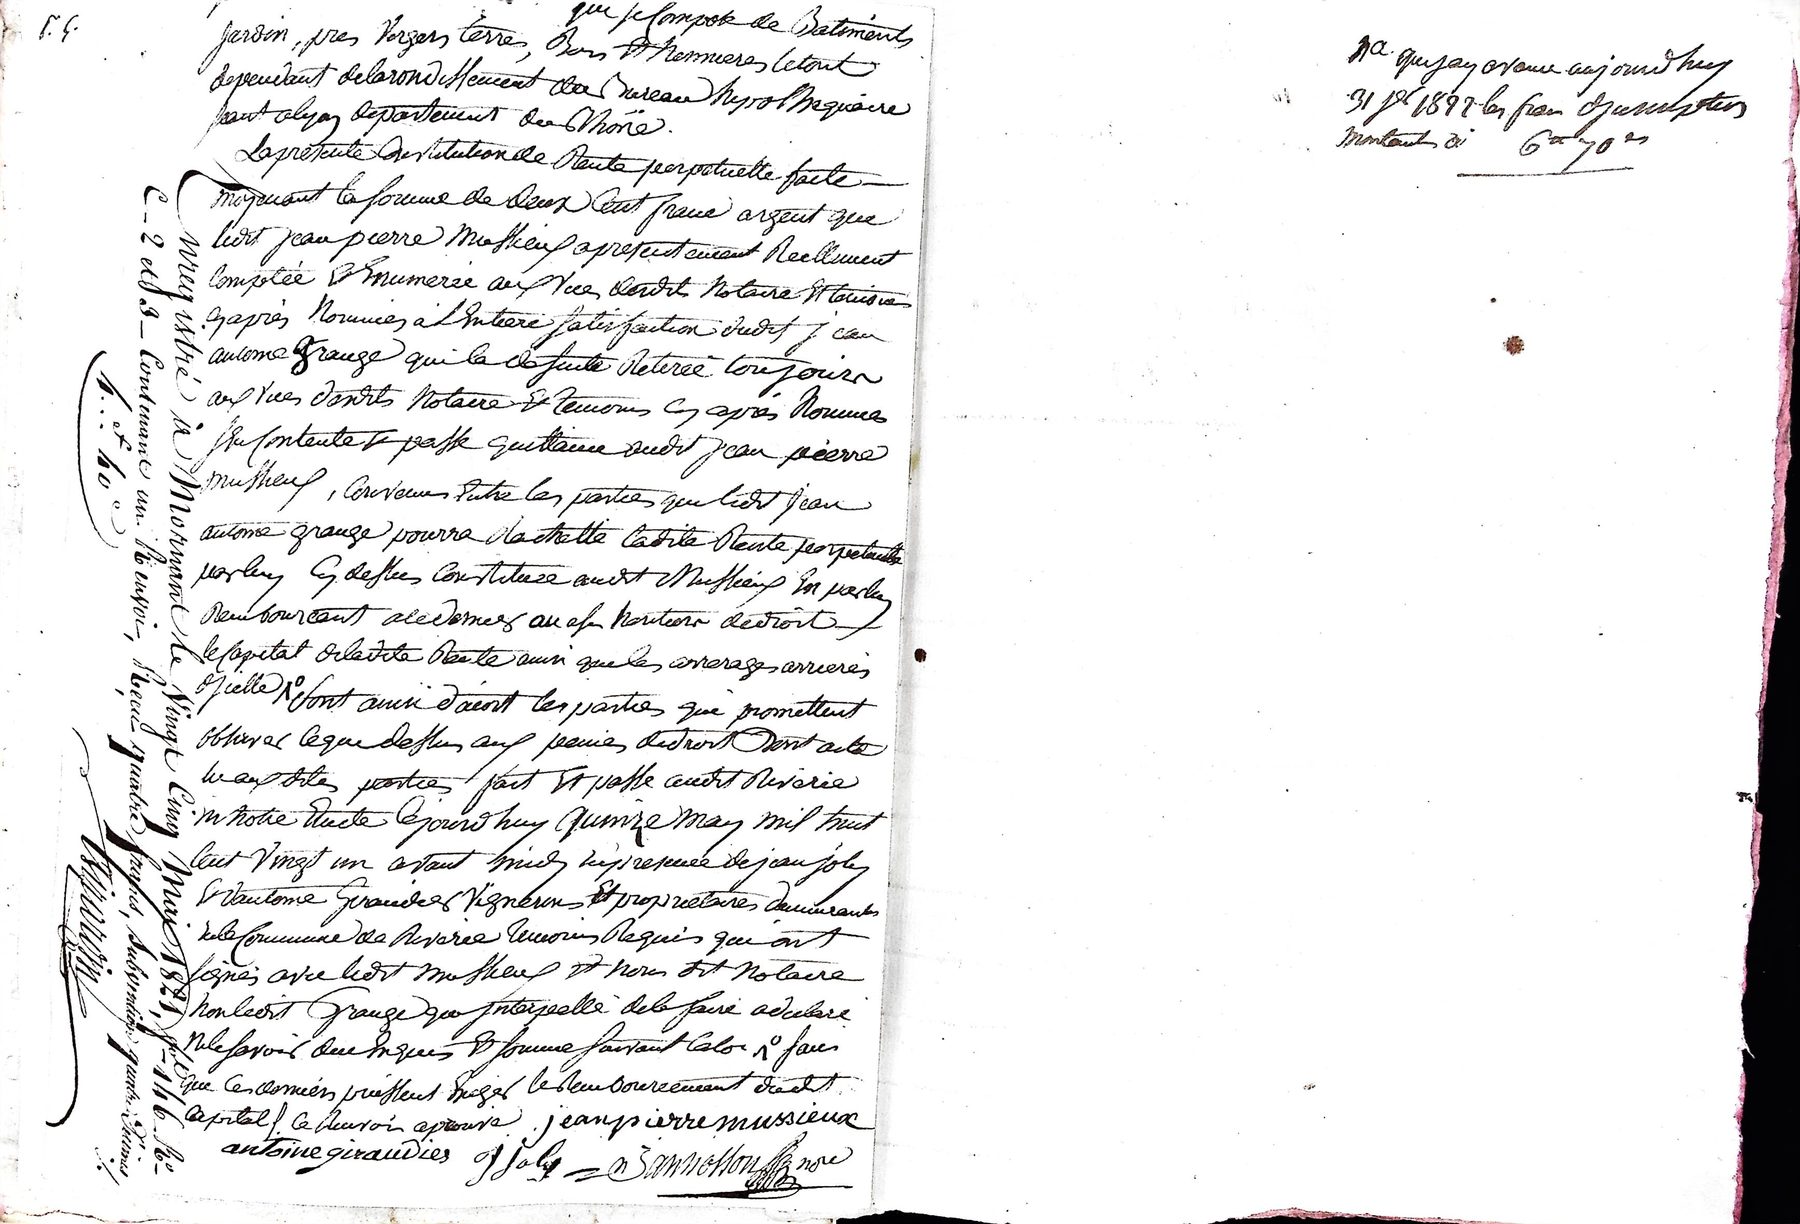 que se Compose de Batiments
jardin, pres Vergers terres, Bois Et hermieres le tout
dependant delarondissement du Bureau hypothequaire
seant alyon departement du Rhône.
La presente Constitution de Rente perpetuelle faite
moyenant la somme de deux Cent franc argent que
ledit jean pierre Mussieux a presentement Reellement
Comptée Et Enumerée aux Vues desdits Notaire Et temoins
Cy après Nommés a l'Entiere satisfaction dudit jean
antoine grange qui la de suite Retirée toujours
aux Vues desdits Notaire Et temoins Cy après Nommes
sen Contente Et passe quittance audit jean pierre
mussieux, Convenus Entre les parties que ledit jean
antoine grange pourra Rachetté ladite Rente perpetuelle
par luy Cy dessus Constituee audit Mussieux En par luy
Rembourcant a ce dernier ou a ses heritiers de droit
le Capital de ladite Rente ainsi que les arrerages arrierés
d'jcelle Ro sont ainsi d'acort les parties qui promettent
observer ce que dessus aux peines de droit Dont acte
lu aux dites parties fait Et passé audit Riverie
En Notre Etude Cejourd'huy quinze may mil huit
Cent Vingt un avant midy En presence de jean joly
Et d'antoine Giraudier Vignerons Et proprietaires demeurants
En la Commune de Riverie temoins Requis qui ont
signés avec ledit mussieux Et Nous dit Notaire
Non ledit Grange qui Interpellé de le faire a declaré
Ne le savoir de ce Enquis Et sommé suivant la loi Ro sans
que Ces derniers puissent Exiger le Rembourcement dudit
Capital / le Renvoi aprouvé. jean pierre mussieux
antoine giraudier j joly Bannesson nore
Enregistré à Mornant le Vingt Cinq Mai 1821, fo 146 Ro
C - 2 et 3 - Contenant un Renvoi, Reçu quatre francs, subvention quarante centimes
4 f 40 c
No que jay avance aujourdhuy
31 1822 les frais d'jnscription
Montants à 6 70